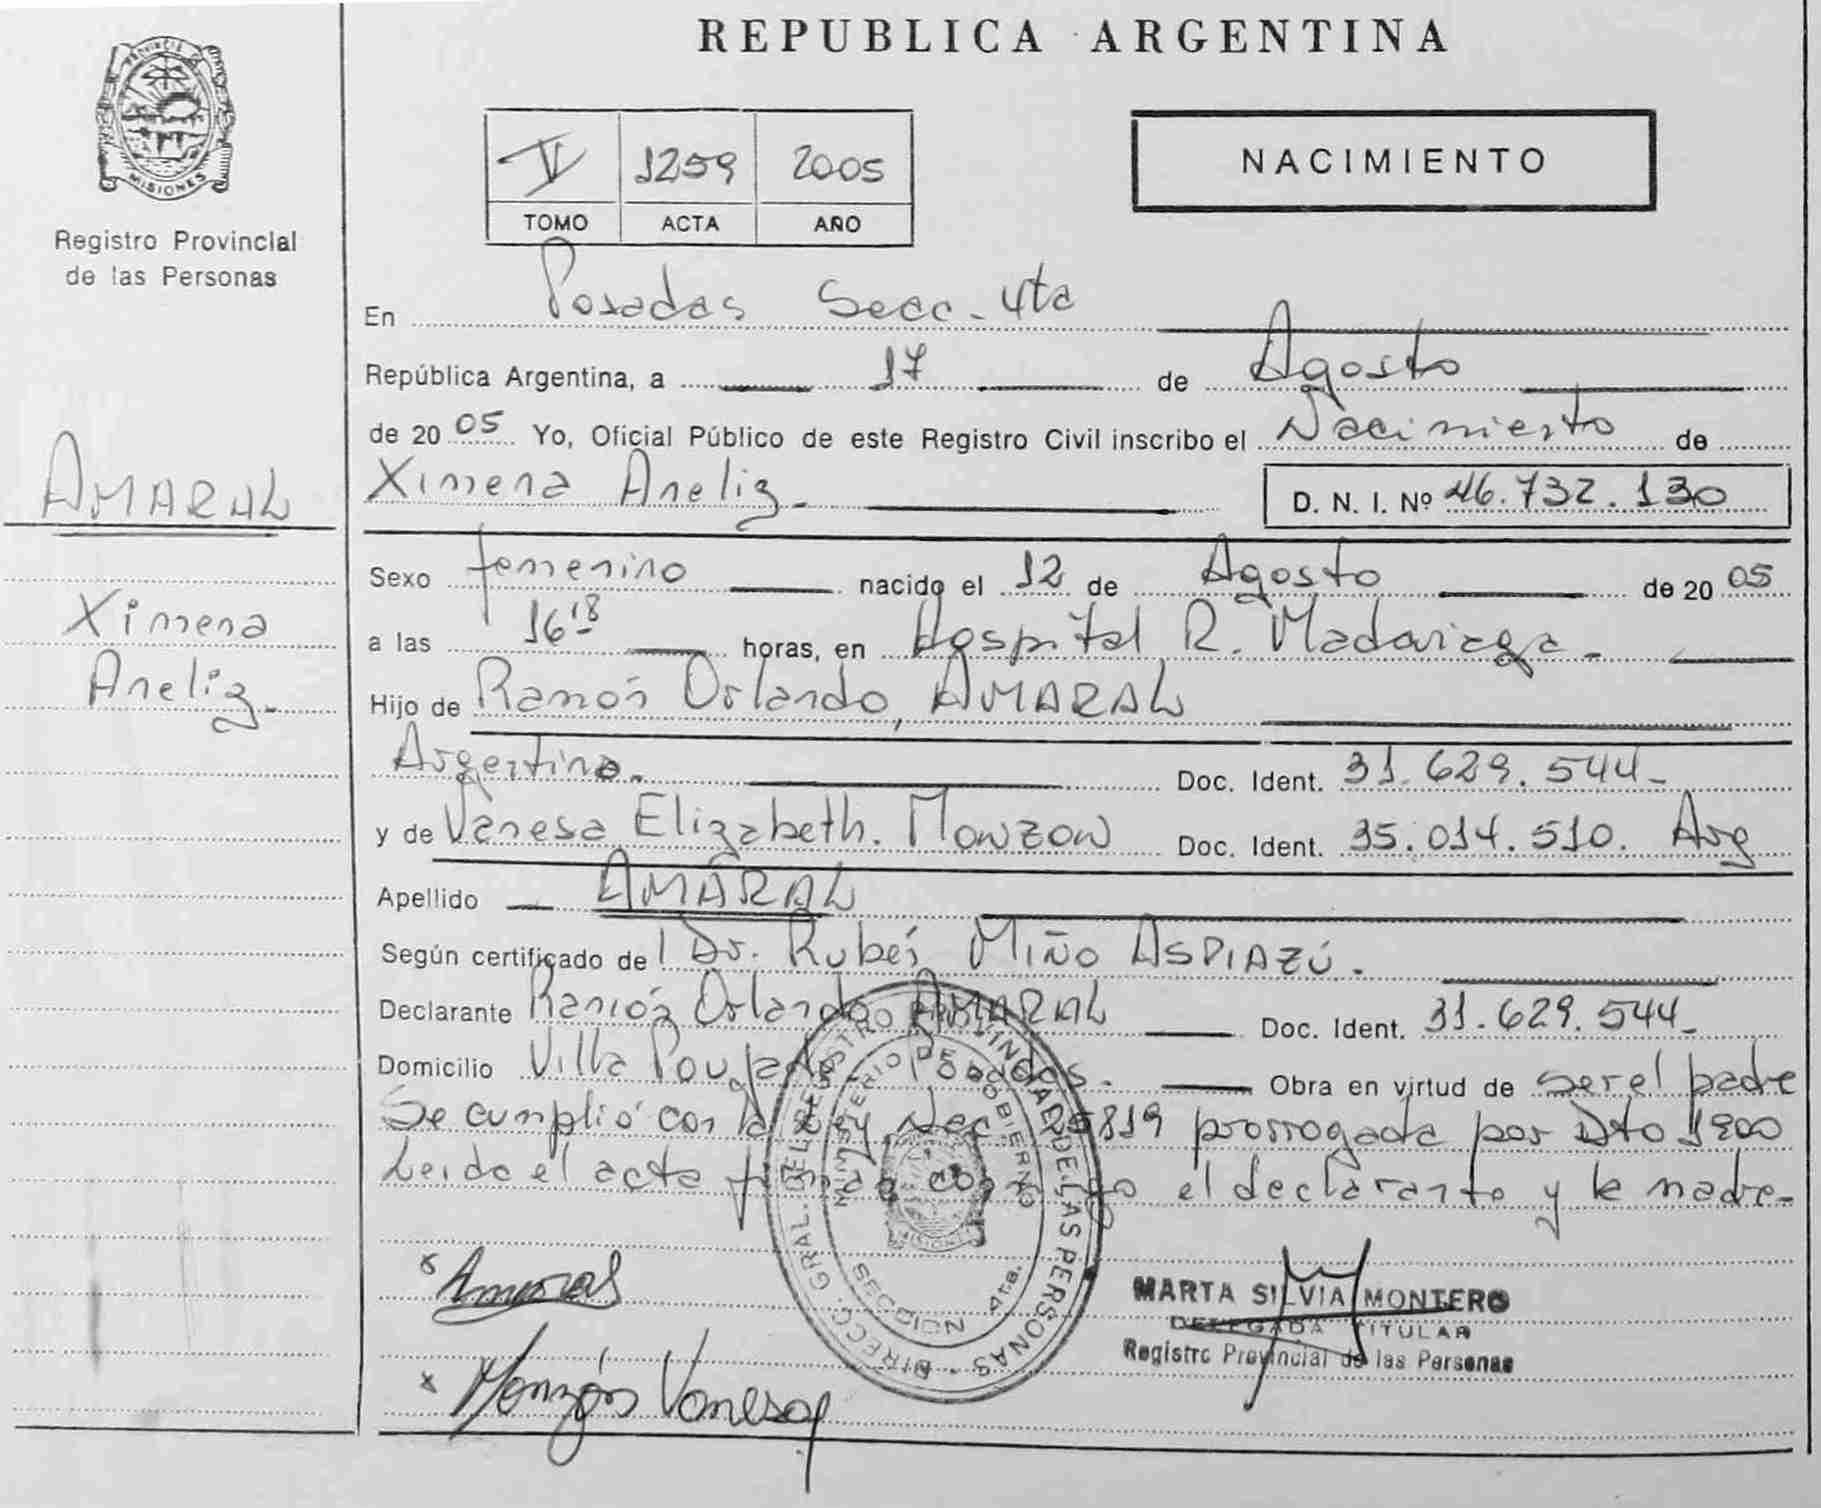 REPUBLICA ARGENTINA
PROVINCIA DE
MISIONES
Registro Provincial
de las Personas
V 1259 2005
TOMO ACTA AÑO
NACIMIENTO
En Posadas Secc. 4ta
República Argentina, a 17 de Agosto
de 20 05 Yo, Oficial Público de este Registro Civil inscribo el Nacimiento de
Ximena Aneliz.- D. N. I. Nº 46.732.130
AMARAL
Ximena
Aneliz.-
Sexo femenino nacido el 12 de Agosto de 20 05
a las 16 18 horas, en Hospital R. Madariaga.-
Hijo de Ramón Orlando, AMARAL
Argentino. Doc. Ident. 31.629.544-
y de Vanesa Elizabeth. MONZON Doc. Ident. 35.014.510. Arg
Apellido AMARAL
Según certificado de Dr. Rubén MIÑO ASPIAZÚ.
Declarante Ramón Orlando AMARAL Doc. Ident. 31.629.544-
Domicilio Villa Poujade - Posadas. Obra en virtud de ser el padre
Se cumplió con la Ley Nac. 25819 prorrogada por Dto 1800
Leída el acta firman conmigo el declarante y la madre.
DIRECC. GRAL. DEL REGISTRO PROVINCIAL DE LAS PERSONAS
MINISTERIO DE GOBIERNO
MISIONES
SECCION 4ta.
x Amaral
MARTA SILVIA MONTERO
DELEGADA TITULAR
Registro Provincial de las Personas
x Monzón Vanesa